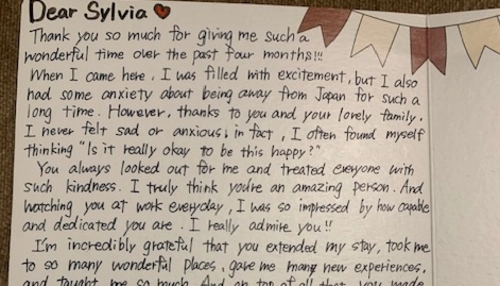 Dear Sylvia ❤
Thank you so much for giving me such a
wonderful time over the past four months!!!
When I came here, I was filled with excitement, but I also
had some anxiety about being away from Japan for such a
long time. However, thanks to you and your lovely family,
I never felt sad or anxious; in fact, I often found myself
thinking "Is it really okay to be this happy?"
You always looked out for me and treated everyone with
such kindness. I truly think you're an amazing person. And
watching you at work everyday, I was so impressed by how capable
and dedicated you are. I really admire you!!
I'm incredibly grateful that you extended my stay, took me
to so many wonderful places, gave me many new experiences,
and taught me so much. And on top of all that, you made